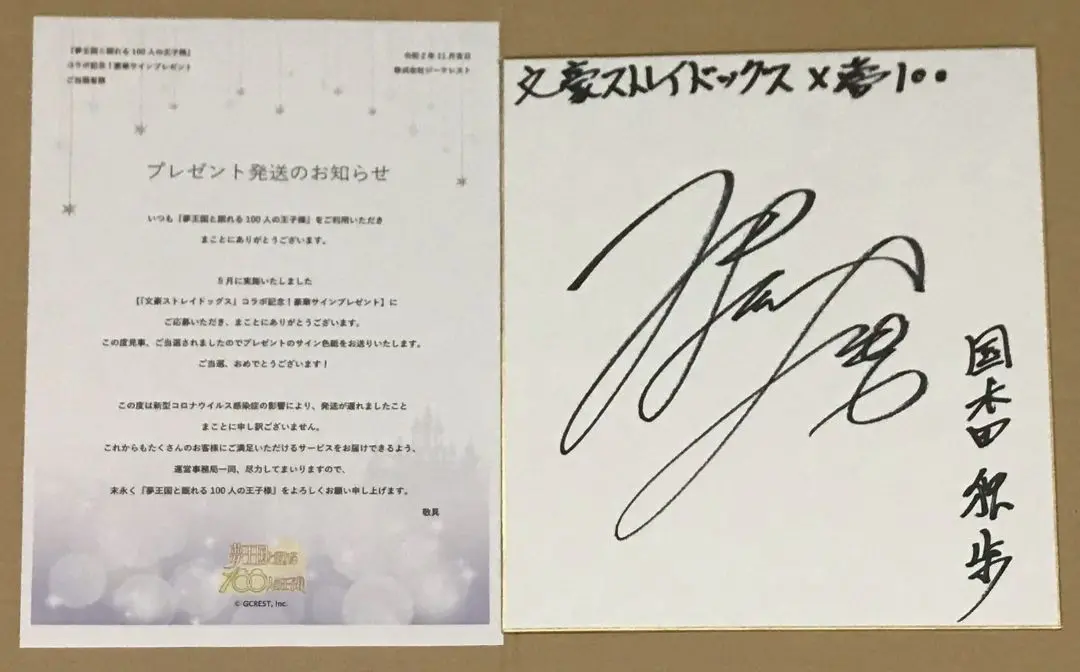 『夢王国と眠れる100人の王子様』
コラボ記念！豪華サインプレゼント
ご当選者様
令和2年11月吉日
株式会社ジークレスト
プレゼント発送のお知らせ
いつも『夢王国と眠れる100人の王子様』をご利用いただき
まことにありがとうございます。
5月に実施いたしました
【「文豪ストレイドッグス」コラボ記念！豪華サインプレゼント】に
ご応募いただき、まことにありがとうございます。
この度見事、ご当選されましたのでプレゼントのサイン色紙をお送りいたします。
ご当選、おめでとうございます！
この度は新型コロナウイルス感染症の影響により、発送が遅れましたこと
まことに申し訳ございません。
これからもたくさんのお客様にご満足いただけるサービスをお届けできるよう、
運営事務局一同、尽力してまいりますので、
末永く『夢王国と眠れる100人の王子様』をよろしくお願い申し上げます。
敬具
夢王国と眠れる
100人の王子様
© GCREST, Inc.
文豪ストレイドックス×夢100
国木田 独歩